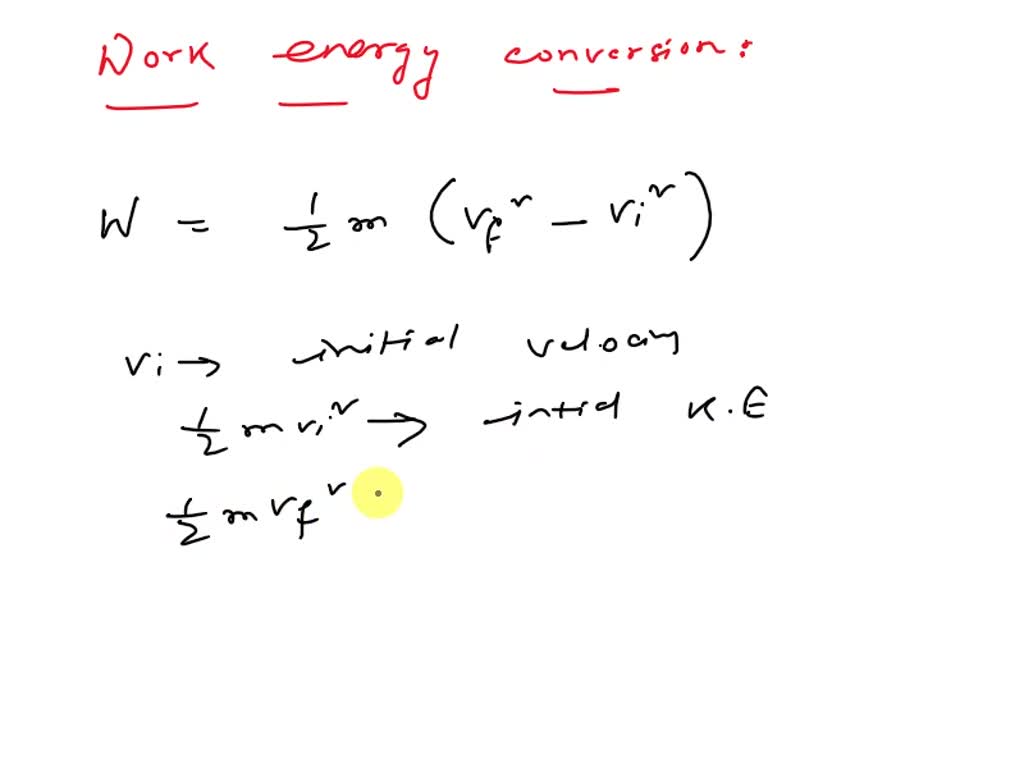 Work energy conversion:
W = 1/2 m (vf² - vi²)
vi → initial velocity
1/2 m vi² → intial K.E
1/2 m vf²